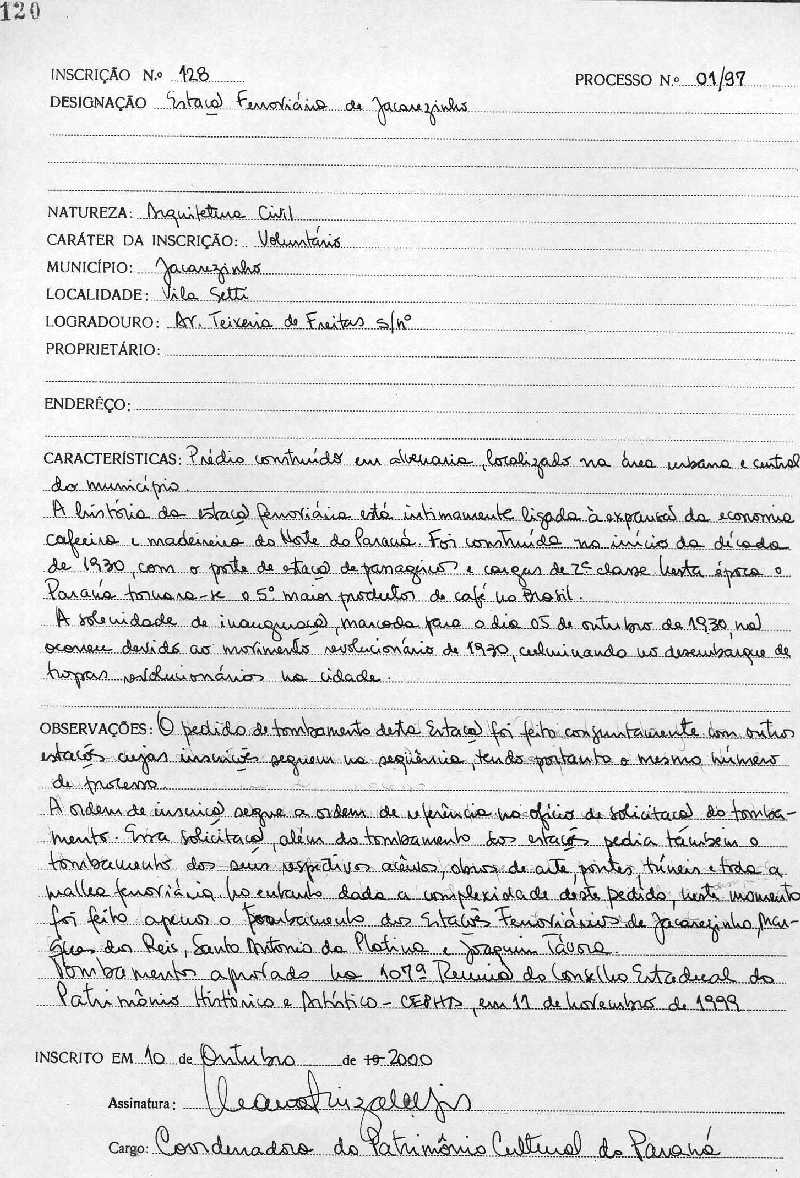 120
INSCRIÇÃO N.º 128 PROCESSO N.º 01/97
DESIGNAÇÃO Estação Ferroviária de Jacarezinho
NATUREZA: Arquitetura Civil
CARÁTER DA INSCRIÇÃO: Voluntário
MUNICÍPIO: Jacarezinho
LOCALIDADE: Vila Setti
LOGRADOURO: Av. Teixeira de Freitas s/nº
PROPRIETÁRIO:
ENDERÊÇO:
CARACTERÍSTICAS: Prédio construído em alvenaria, localizado na área urbana e central
do município.
A história da estação ferroviária está intimamente ligada à expansão da economia
cafeeira e madeireira do Norte do Paraná. Foi construída no início da década
de 1930, com o porte de estação de passageiros e cargas de 2ª classe. Nesta época o
Paraná tornara-se o 5º maior produtor de café no Brasil.
A solenidade de inauguração, marcada para o dia 05 de outubro de 1930, não
ocorreu devido ao movimento revolucionário de 1930, culminando no desembarque de
tropas revolucionárias na cidade.
OBSERVAÇÕES: O pedido de tombamento desta Estação foi feito conjuntamente com outras
estações cujas inscrições seguem na seqüência, tendo portanto o mesmo número
de processo.
A ordem de inscrição segue a ordem de referência no ofício de solicitação do tomba-
mento. Essa solicitação, além do tombamento das estações pedia também o
tombamento dos seus respectivos acervos, obras de arte, pontes, túneis e toda a
malha ferroviária. No entanto dada a complexidade deste pedido, neste momento
foi feito apenas o tombamento das Estações Ferroviárias de Jacarezinho, Mar-
ques dos Reis, Santo Antonio da Platina e Joaquim Távora
Tombamento aprovado na 107ª Reunião do Conselho Estadual do
Patrimônio Histórico e Artístico - CEPHA, em 11 de novembro de 1999
INSCRITO EM 10 de Outubro de 19 2000
Assinatura:
Cargo: Coordenadora do Patrimônio Cultural do Paraná